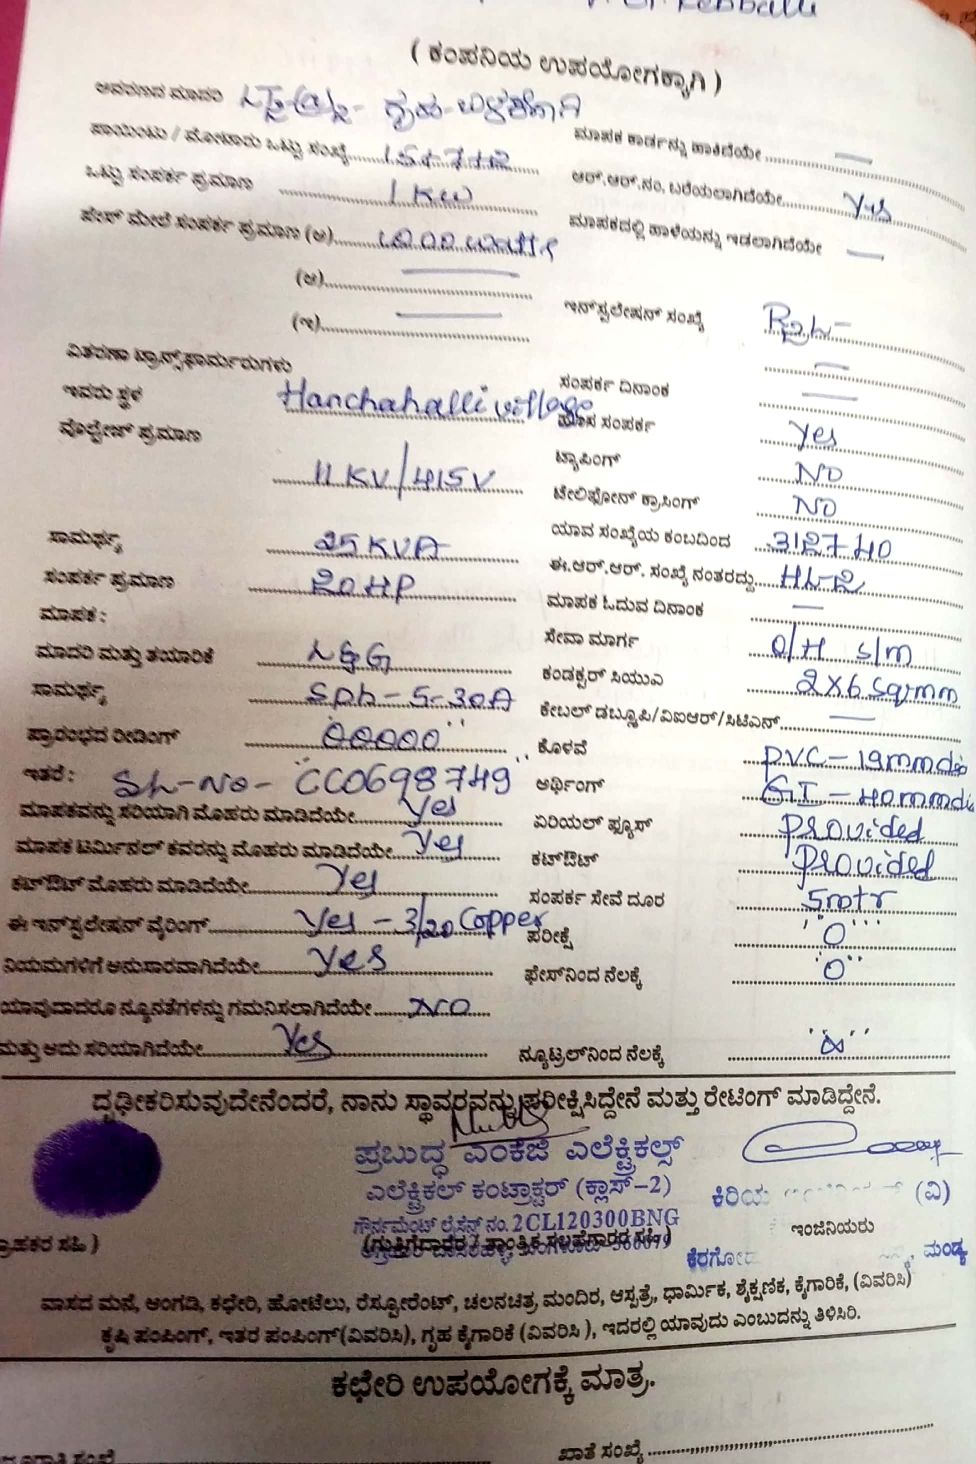 ( ಕಂಪನಿಯ ಉಪಯೋಗಕ್ಕಾಗಿ )
ಆವರಣದ ಮಾದರಿ ಗೃಹ-ಬಳಕೆಗಾಗಿ
ಪಾಯಿಂಟು / ಮೋಟಾರು ಒಟ್ಟು ಸಂಖ್ಯೆ
ಮಾಪಕ ಕಾರ್ಡನ್ನು ಹಾಕಿದೆಯೇ —
ಒಟ್ಟು ಸಂಪರ್ಕ ಪ್ರಮಾಣ 1 KW
ಆರ್.ಆರ್.ನಂ. ಬರೆಯಲಾಗಿದೆಯೇ yes
ಫೇಸ್ ಮೇಲೆ ಸಂಪರ್ಕ ಪ್ರಮಾಣ (ಅ) 1000 watts
ಮಾಪಕದಲ್ಲಿ ಹಾಳೆಯನ್ನು ಇಡಲಾಗಿದೆಯೇ —
(ಆ) —
(ಇ) —
ಇನ್‌ಸ್ಟಲೇಷನ್ ಸಂಖ್ಯೆ
ವಿತರಣಾ ಟ್ರಾನ್ಸ್‌ಫಾರ್ಮರುಗಳು
ಇವರು ಸ್ಥಳ Hanchahalli village
ಸಂಪರ್ಕ ದಿನಾಂಕ —
ಸಂಪರ್ಕ yes
ವೋಲ್ಟೇಜ್ ಪ್ರಮಾಣ 11 KV/415V
ಟ್ಯಾಪಿಂಗ್ NO
ಟೇಲಿಫೋನ್ ಕ್ರಾಸಿಂಗ್ NO
ಸಾಮರ್ಥ್ಯ 25 KVA
ಯಾವ ಸಂಖ್ಯೆಯ ಕಂಬದಿಂದ 312740
ಸಂಪರ್ಕ ಪ್ರಮಾಣ 20 HP
ಈ.ಆರ್.ಆರ್. ಸಂಖ್ಯೆ ನಂತರದ್ದು HL-2
ಮಾಪಕ :
ಮಾಪಕ ಓದುವ ದಿನಾಂಕ —
ಮಾದರಿ ಮತ್ತು ತಯಾರಿಕೆ L&G
ಸೇವಾ ಮಾರ್ಗ O/H S/M
ಸಾಮರ್ಥ್ಯ 5-30A
ಕಂಡಕ್ಟರ್ ಸಿಯುಎ 2X6 Sqmm
ಪ್ರಾರಂಭದ ರೀಡಿಂಗ್ "00000"
ಕೇಬಲ್ ಡಬ್ಲೂಪಿ/ವಿಐಆರ್/ಸಿಟಿಎಸ್ —
ಇತರೆ : SL-NO- CC0698749
ಕೊಳವೆ PVC - 19mmdia
ಮಾಪಕವನ್ನು ಸರಿಯಾಗಿ ಮೊಹರು ಮಾಡಿದೆಯೇ yes
ಅರ್ಥಿಂಗ್ GI - 40mmdia
ಮಾಪಕ ಟರ್ಮಿನಲ್ ಕವರನ್ನು ಮೊಹರು ಮಾಡಿದೆಯೇ yes
ಏರಿಯಲ್ ಫ್ಯೂಸ್ Provided
ಕಟ್‌ಔಟ್ ಮೊಹರು ಮಾಡಿದೆಯೇ yes
ಕಟ್‌ಔಟ್ Provided
ಈ ಇನ್‌ಸ್ಟಲೇಷನ್ ವೈರಿಂಗ್ Yes - 3/20 Copper
ಸಂಪರ್ಕ ಸೇವೆ ದೂರ 5mtr
ಪರೀಕ್ಷೆ "0"
ನಿಯಮಗಳಿಗೆ ಅನುಸಾರವಾಗಿದೆಯೇ Yes
ಫೇಸ್‌ನಿಂದ ನೆಲಕ್ಕೆ "0"
ಯಾವುದಾದರೂ ನ್ಯೂನತೆಗಳನ್ನು ಗಮನಿಸಲಾಗಿದೆಯೇ NO
ಮತ್ತು ಅದು ಸರಿಯಾಗಿದೆಯೇ Yes
ನ್ಯೂಟ್ರಲ್‌ನಿಂದ ನೆಲಕ್ಕೆ "∞"
ದೃಢೀಕರಿಸುವುದೇನೆಂದರೆ, ನಾನು ಸ್ಥಾವರವನ್ನು ಪರೀಕ್ಷಿಸಿದ್ದೇನೆ ಮತ್ತು ರೇಟಿಂಗ್ ಮಾಡಿದ್ದೇನೆ.
ಪ್ರಬುದ್ಧ ಎಂಕೆಜಿ ಎಲೆಕ್ಟ್ರಿಕಲ್ಸ್
ಎಲೆಕ್ಟ್ರಿಕಲ್ ಕಂಟ್ರಾಕ್ಟರ್ (ಕ್ಲಾಸ್-2)
ಕಿರಿಯ (ವಿ)
ಗೌರ್ನಮೆಂಟ್ ಲೈಸೆನ್ಸ್ ನಂ. 2CL120300BNG
ಇಂಜಿನಿಯರು
ಸಹಿ )
(ಗುತ್ತಿಗೆದಾರರ / ತಾಂತ್ರಿಕ ಸಲಹೆಗಾರರ ಸಹಿ )
ಮಂಡ್ಯ
ವಾಸದ ಮನೆ, ಅಂಗಡಿ, ಕಛೇರಿ, ಹೋಟೆಲು, ರೆಸ್ಟೋರೆಂಟ್, ಚಲನಚಿತ್ರ ಮಂದಿರ, ಆಸ್ಪತ್ರೆ, ಧಾರ್ಮಿಕ, ಶೈಕ್ಷಣಿಕ, ಕೈಗಾರಿಕೆ, (ವಿವರಿಸಿ)
ಕೃಷಿ ಪಂಪಿಂಗ್, ಇತರ ಪಂಪಿಂಗ್(ವಿವರಿಸಿ), ಗೃಹ ಕೈಗಾರಿಕೆ (ವಿವರಿಸಿ ), ಇದರಲ್ಲಿ ಯಾವುದು ಎಂಬುದನ್ನು ತಿಳಿಸಿರಿ.
ಕಛೇರಿ ಉಪಯೋಗಕ್ಕೆ ಮಾತ್ರ.
ಖಾತೆ ಸಂಖ್ಯೆ